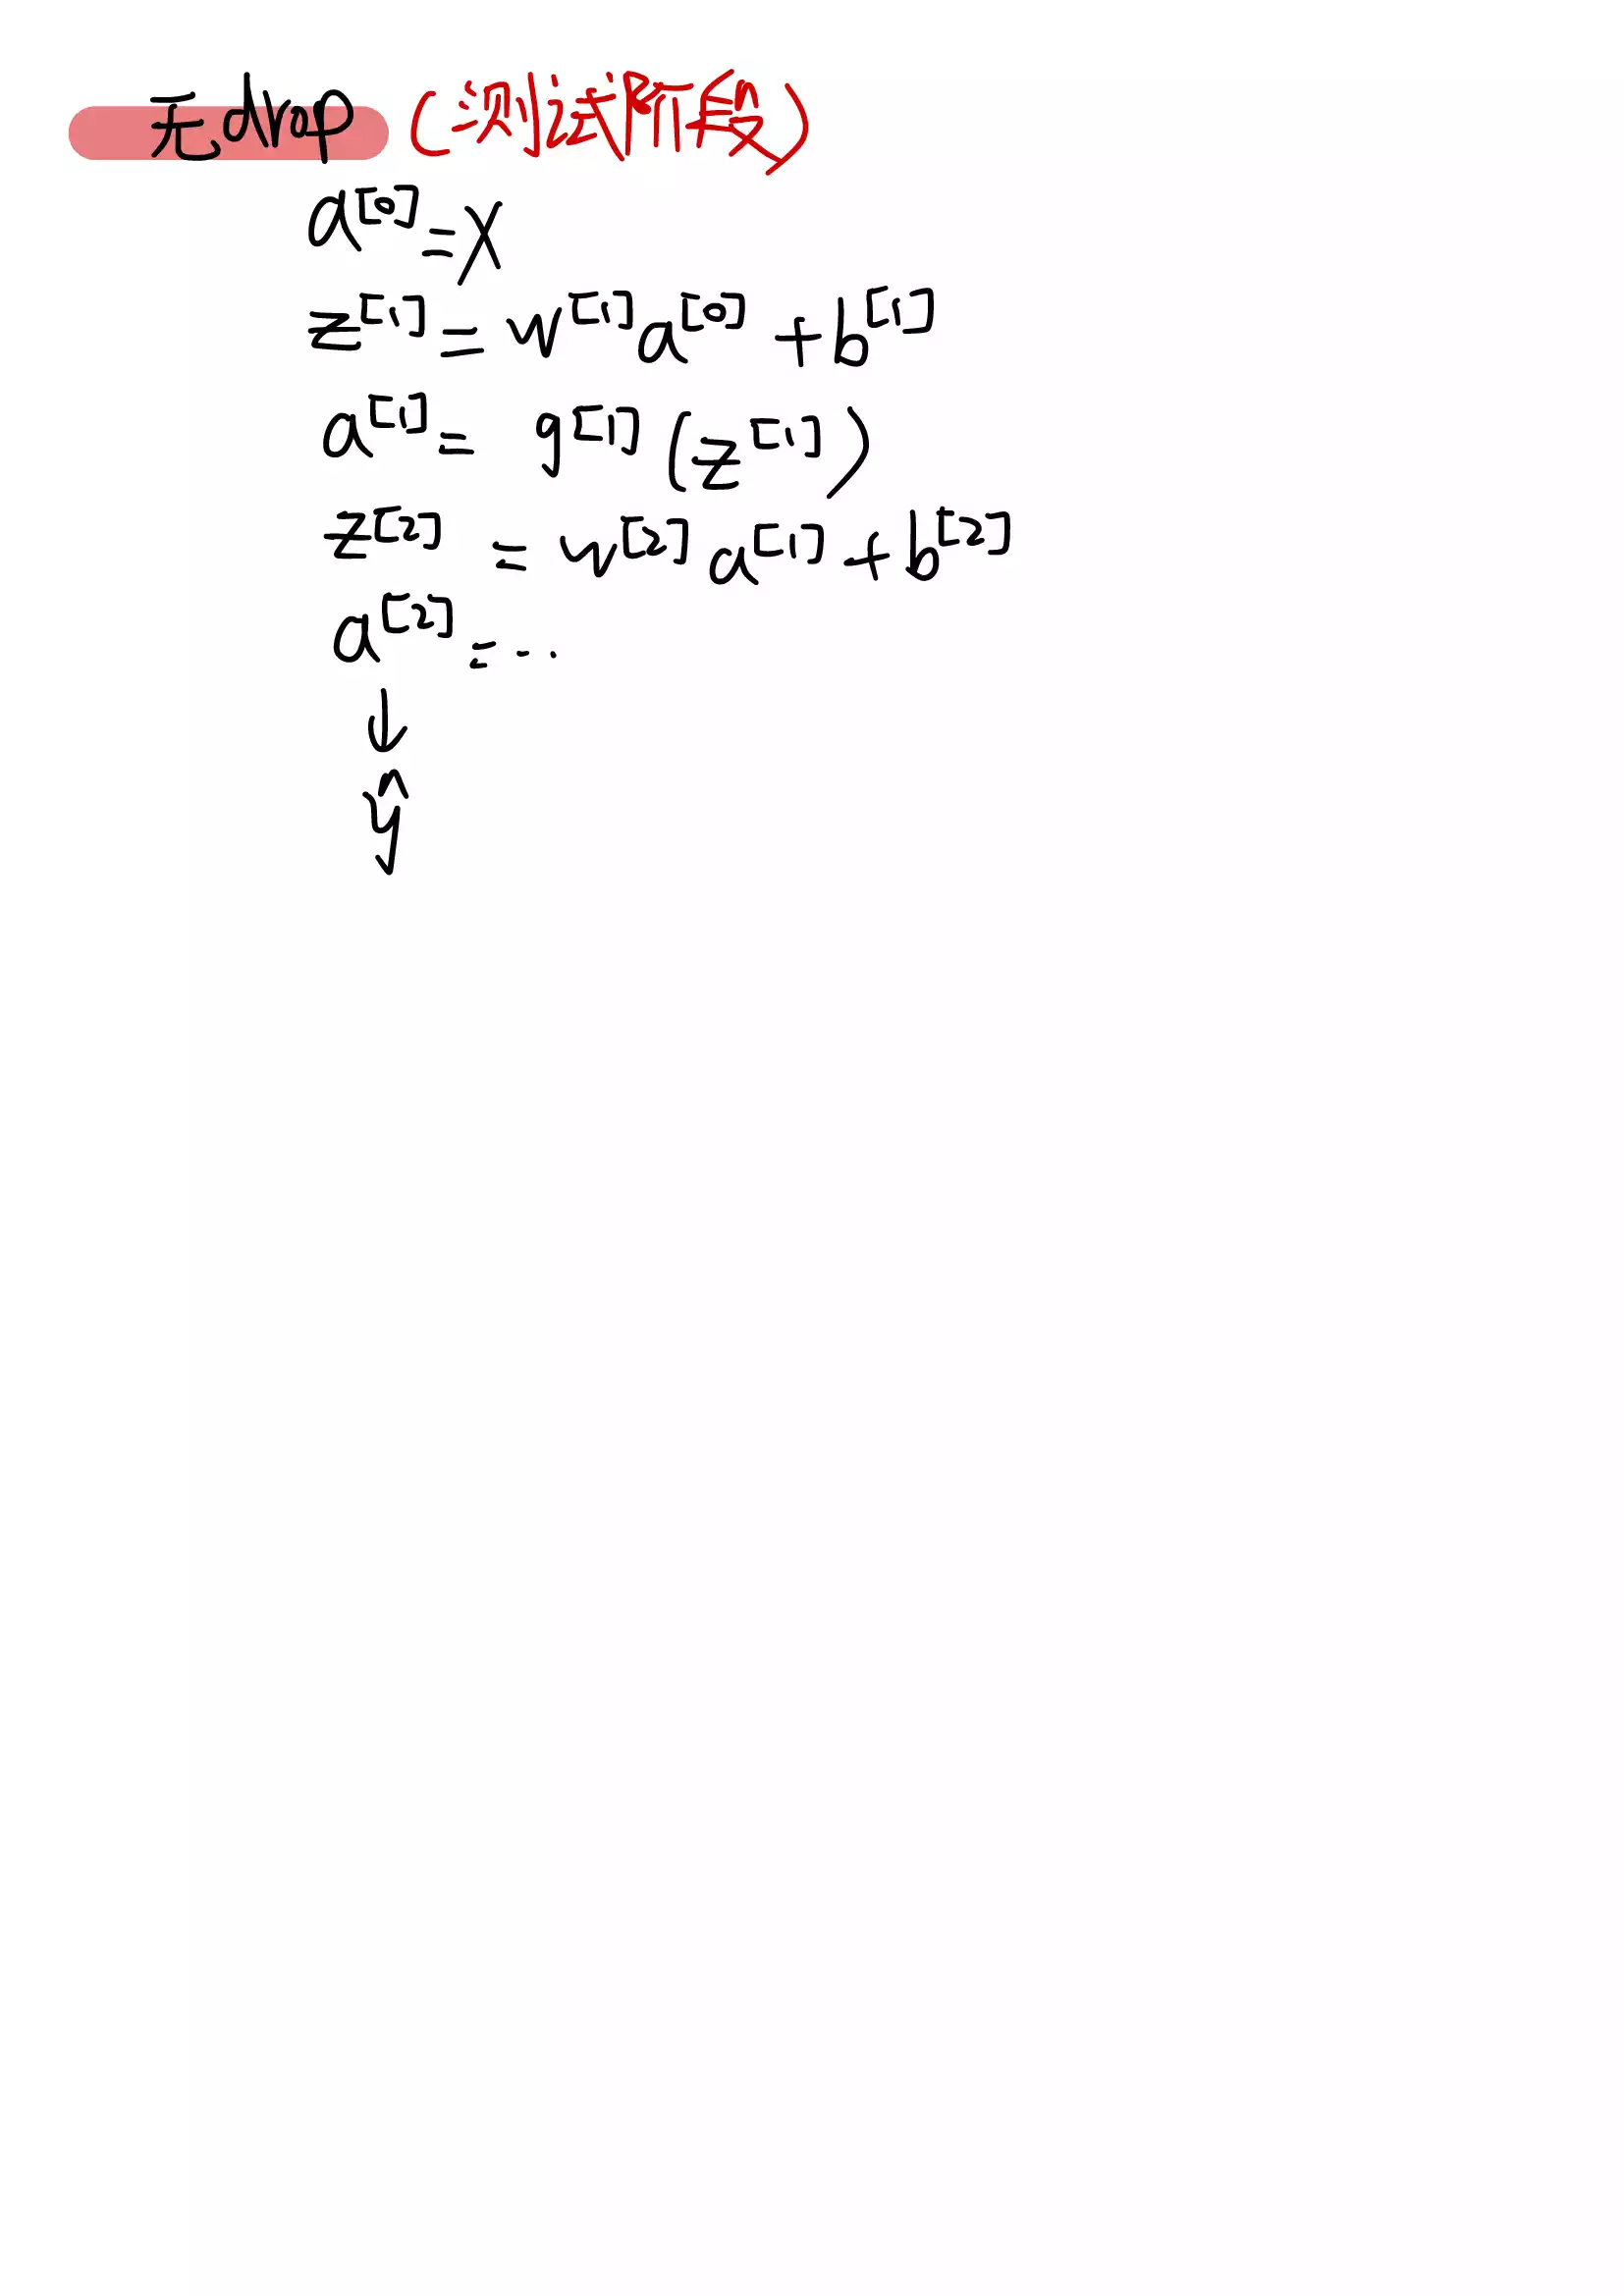 无drop (测试阶段)
a^[0] = X
z^[1] = w^[1] a^[0] + b^[1]
a^[1] = g^[1] (z^[1])
z^[2] = w^[2] a^[1] + b^[2]
a^[2] = ...
↓
ŷ